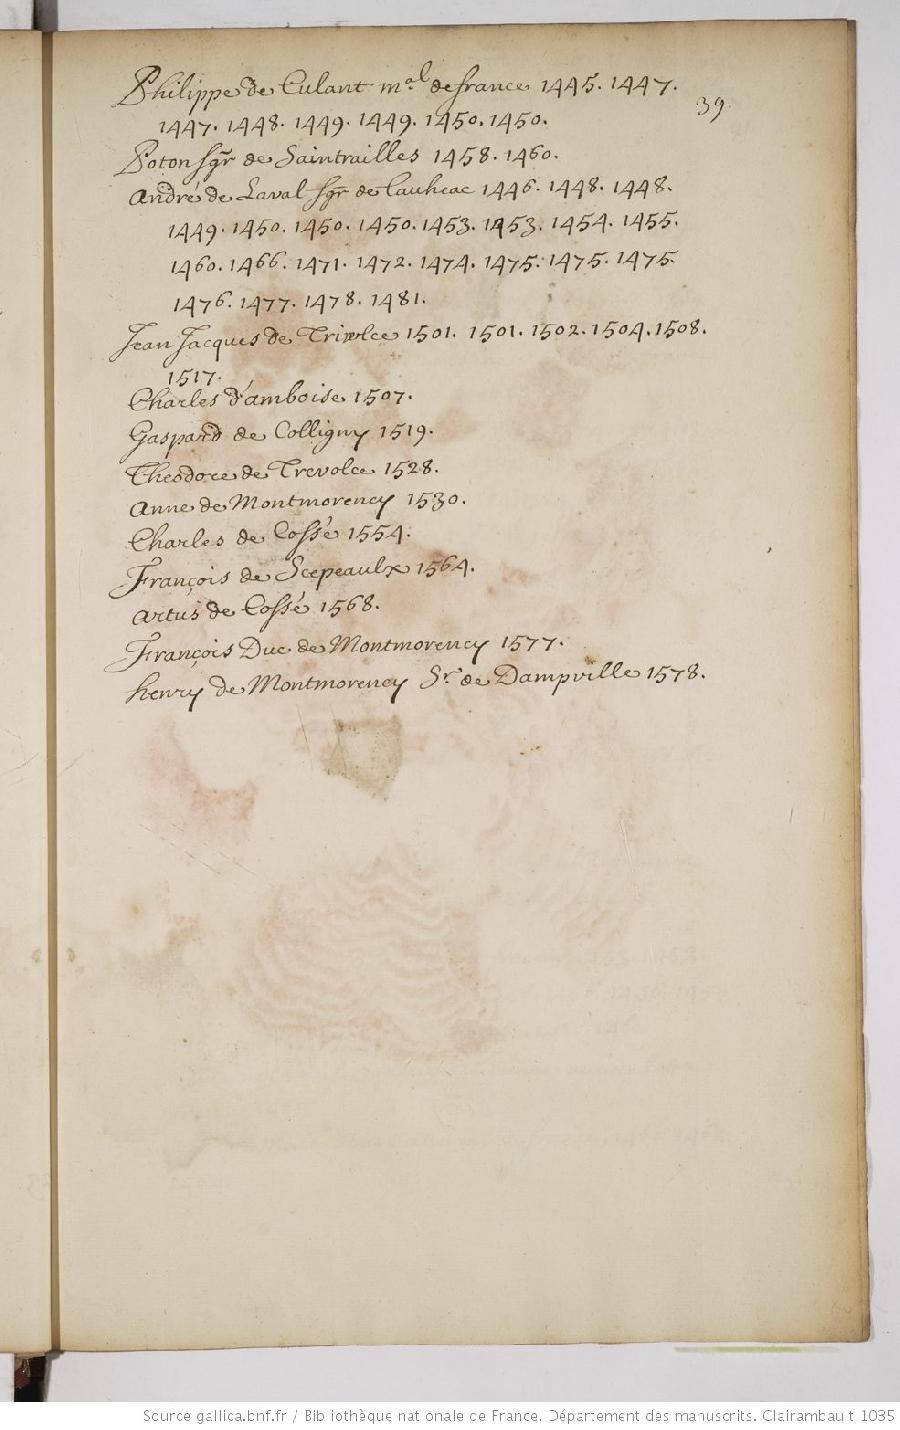 Philippe de Culant m.al de france 1445. 1447.
39.
1447. 1448. 1449. 1449. 1450. 1450.
Poton sgr de Saintrailles 1458. 1460.
André de Laval sgr de Lauheac 1446. 1448. 1448.
1449. 1450. 1450. 1450. 1453. 1453. 1454. 1455.
1460. 1466. 1471. 1472. 1474. 1475. 1475. 1475
1476. 1477. 1478. 1481.
Jean Jacques de Trivolce 1501. 1501. 1502. 1504. 1508.
1517.
Charles d'amboise 1507.
Gaspard de Colligny 1519.
Theodore de Trevolce 1528.
Anne de Montmorency 1530.
Charles de Cossé 1554.
François de Scepeaulx 1564.
Artus de Cossé 1568.
François Duc de Montmorency 1577.
henry de Montmorency Sr de Dampville 1578.
Source gallica.bnf.fr / Bibliothèque nationale de France. Département des manuscrits. Clairambault 1035